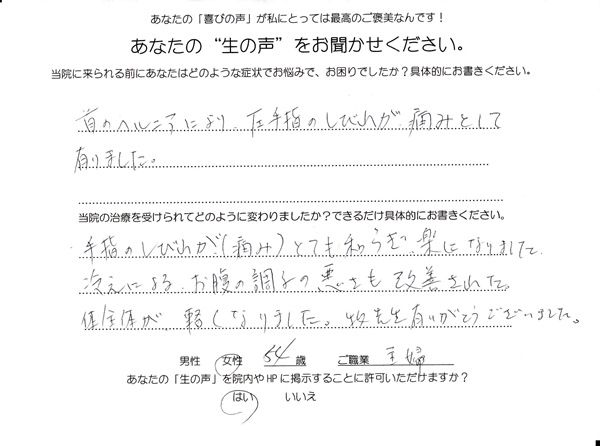 あなたの「喜びの声」が私にとっては最高のご褒美なんです!
あなたの “生の声” をお聞かせください。
当院に来られる前にあなたはどのような症状でお悩みで、お困りでしたか?具体的にお書きください。
首のヘルニアにより、左手指のしびれが痛みとして
有りました。
当院の治療を受けられてどのように変わりましたか?できるだけ具体的にお書きください。
手指のしびれが(痛み)とても和らぎ、楽になりまして、
冷えによる、お腹の調子の悪さも改善された。
体全体が 軽くなりました。牧先生有りがとうございました。
男性 女性 54 歳 ご職業 主婦
あなたの「生の声」を院内やHPに掲示することに許可いただけますか?
はい いいえ